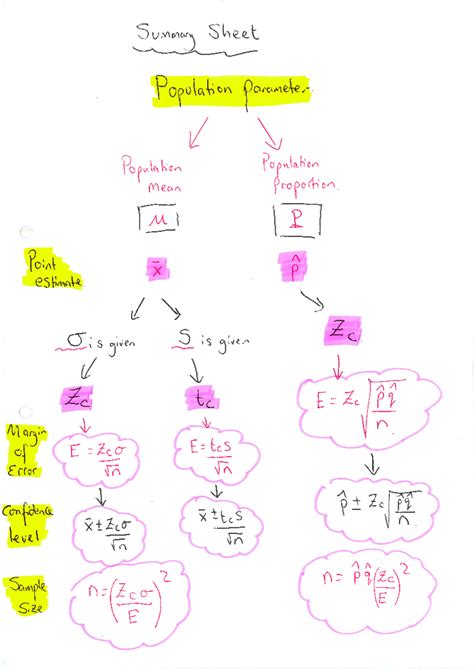 Summary Sheet
Population parameter.
Population
Mean
Population
Proportion.
μ
P
Point
estimate
x̄
p̂
σ is given
S is given
Zc
Zc
tc
Margin
of
Error
E = Zcσ/√n
E = tcs/√n
E = Zc√(p̂q̂/n)
Confidence
level
x̄ ± Zcσ/√n
x̄ ± tcs/√n
p̂ ± Zc√(p̂q̂/n)
Sample
Size
n = (Zcσ/E)²
n = p̂q̂(Zc/E)²